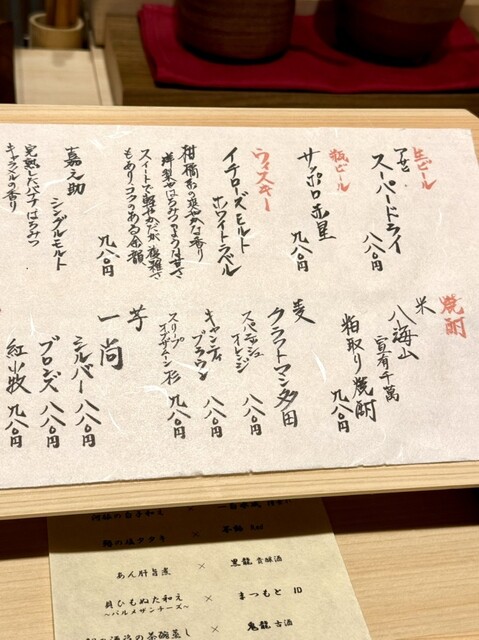 生ビール
アサヒ
スーパードライ
八八〇円
瓶ビール
サッポロ赤星
九八〇円
ウィスキー
イチローズモルト
ホワイトラベル
柑橘系の爽やかな香り
洋梨やはちみつような甘さ
スイートで軽やかだが複雑さ
もあり、コクのある余韻
九八〇円
嘉之助
シングルモルト
九八〇円
完熟したバナナはちみつ
キャラメルの香り
焼酎
米
八海山
宜有千萬
粕取り焼酎
九八〇円
麦
クラフトマン多田
スパニッシュ
オレンジ
八八〇円
キャンティ
ブラウン
八八〇円
スリープ
オブザムーン杉
九八〇円
芋
一尚
シルバー八八〇円
ブロンズ八八〇円
紅小牧九八〇円
×
×
茶釉
あん肝旨煮 × 黒龍 貴醸酒
貝ひもぬた和え × まつもと ID
~パルメザンチーズ~
の茶碗蒸し × 鬼龍 古酒